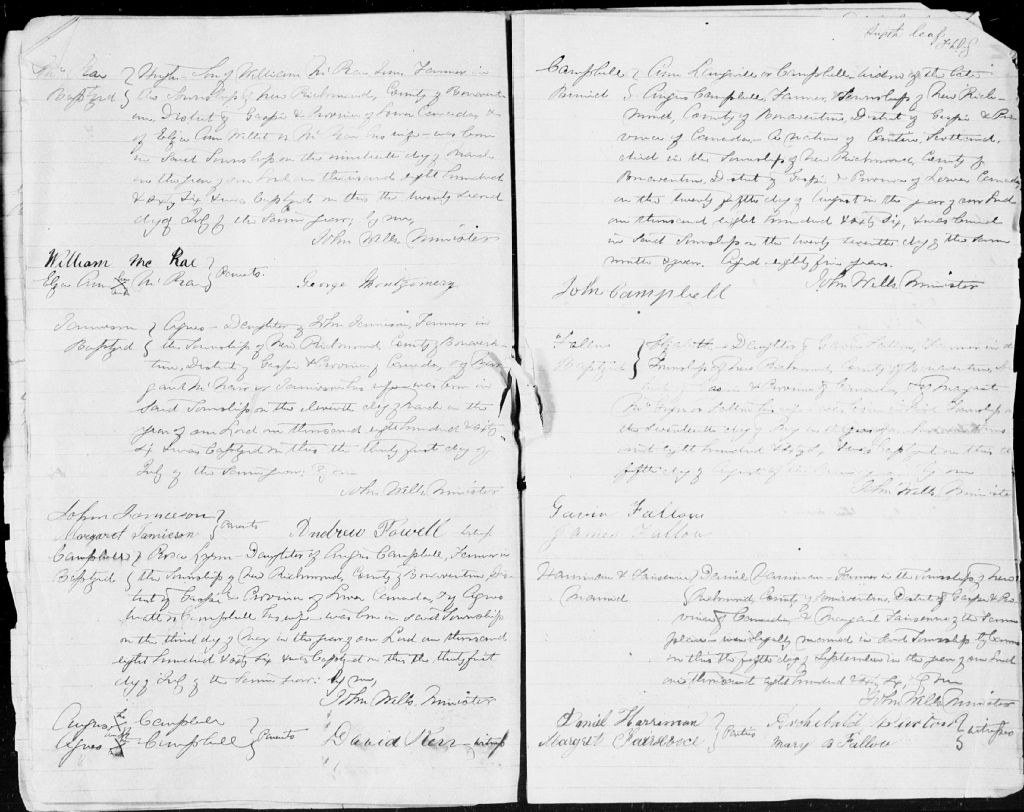 Mc Rae } Hugh - Son of William Mc Rae Junr. Farmer in
Baptyzd } the Township of New Richmond, County of Bonaven-
ture, District of Gaspé & Province of Lower Canada &
of Eliza Ann Willet or Mc Rae his wife - was born
in said Township on the nineteenth day of March
in the year of our Lord one thousand eight hundred
& sixty six & was baptyzd on this the twenty second
day of July of the same year; by me,
John Wells Minister
William Mc Rae }
Eliza Ann X Mc Rae } Parents. George Montgomery
Jamieson } Agnes - Daughter of John Jamieson, Farmer in
Baptyzd } the Township of New Richmond, County of Bonaven-
ture, District of Gaspé & Province of Canada, & by Mar-
garet Mc Nair or Jamieson his wife was born in
said Township on the eleventh day of March in the
year of our Lord one thousand eight hundred & sixty
six & was baptyzd on this the thirty first day of
July of the same year: By me
John Wells Minister
John Jamieson }
Margaret Jamieson } Parents Andrew Powell
Campbell } Rosa Daughter of Angus Campbell, Farmer in
Baptyzd } the Township of New Richmond, County of Bonaventure, Dis-
trict of Gaspé & Province of Lower Canada, & by Agnes
Watt or Campbell his wife - was born in said Township
on the third day of May in the year of our Lord one thousand
eight hundred & sixty six & was baptyzd on this the thirty first
day of July of the same year: by me,
John Wells Minister
Angus X Campbell }
Agnes X Campbell } Parents David Kerr - witness
leaf
Campbell } Ann or Campbell, widow of the late
Buried } Angus Campbell, Farmer, Township of New Rich-
mond, County of Bonaventure, District of Gaspé & Pro-
vince of Canada - a Native of Cantire, Scotland,
died in the Township of New Richmond, County of
Bonaventure, District of Gaspé & Province of Lower Canada
on the twenty fifth day of August in the year of our Lord
one thousand eight hundred & sixty six, & was buried
in said Township on the twenty seventh day of the same
month & year. Aged eighty five years.
John Campbell John Wells Minister
Fallow } Elizabeth - Daughter of Gavin Fallow, Farmer in the
Baptyzd } Township of New Richmond, County of Bonaventure,
Gaspé & Province of Canada, Margaret
Mc or Fallow his wife - was born in said Township
the seventeenth day of
eight hundred & sixty six & was baptyzd on this the
fifth day of August of the same by me
John Wells Minister
Gavin Fallow
James Fallow
Harriman & } Daniel Harriman - Farmer in the Township of New
Married } Richmond, County of Bonaventure, District of Gaspé & Pro-
vince of Canada & Margaret of the same
place - were legally married in said Township
on this the fifth day of September in the year of our Lord
one thousand eight hundred & sixty six, by me
John Wells Minister
Daniel Harriman } Archibald }
Margret } Parties Mary A Fallow } witnesses